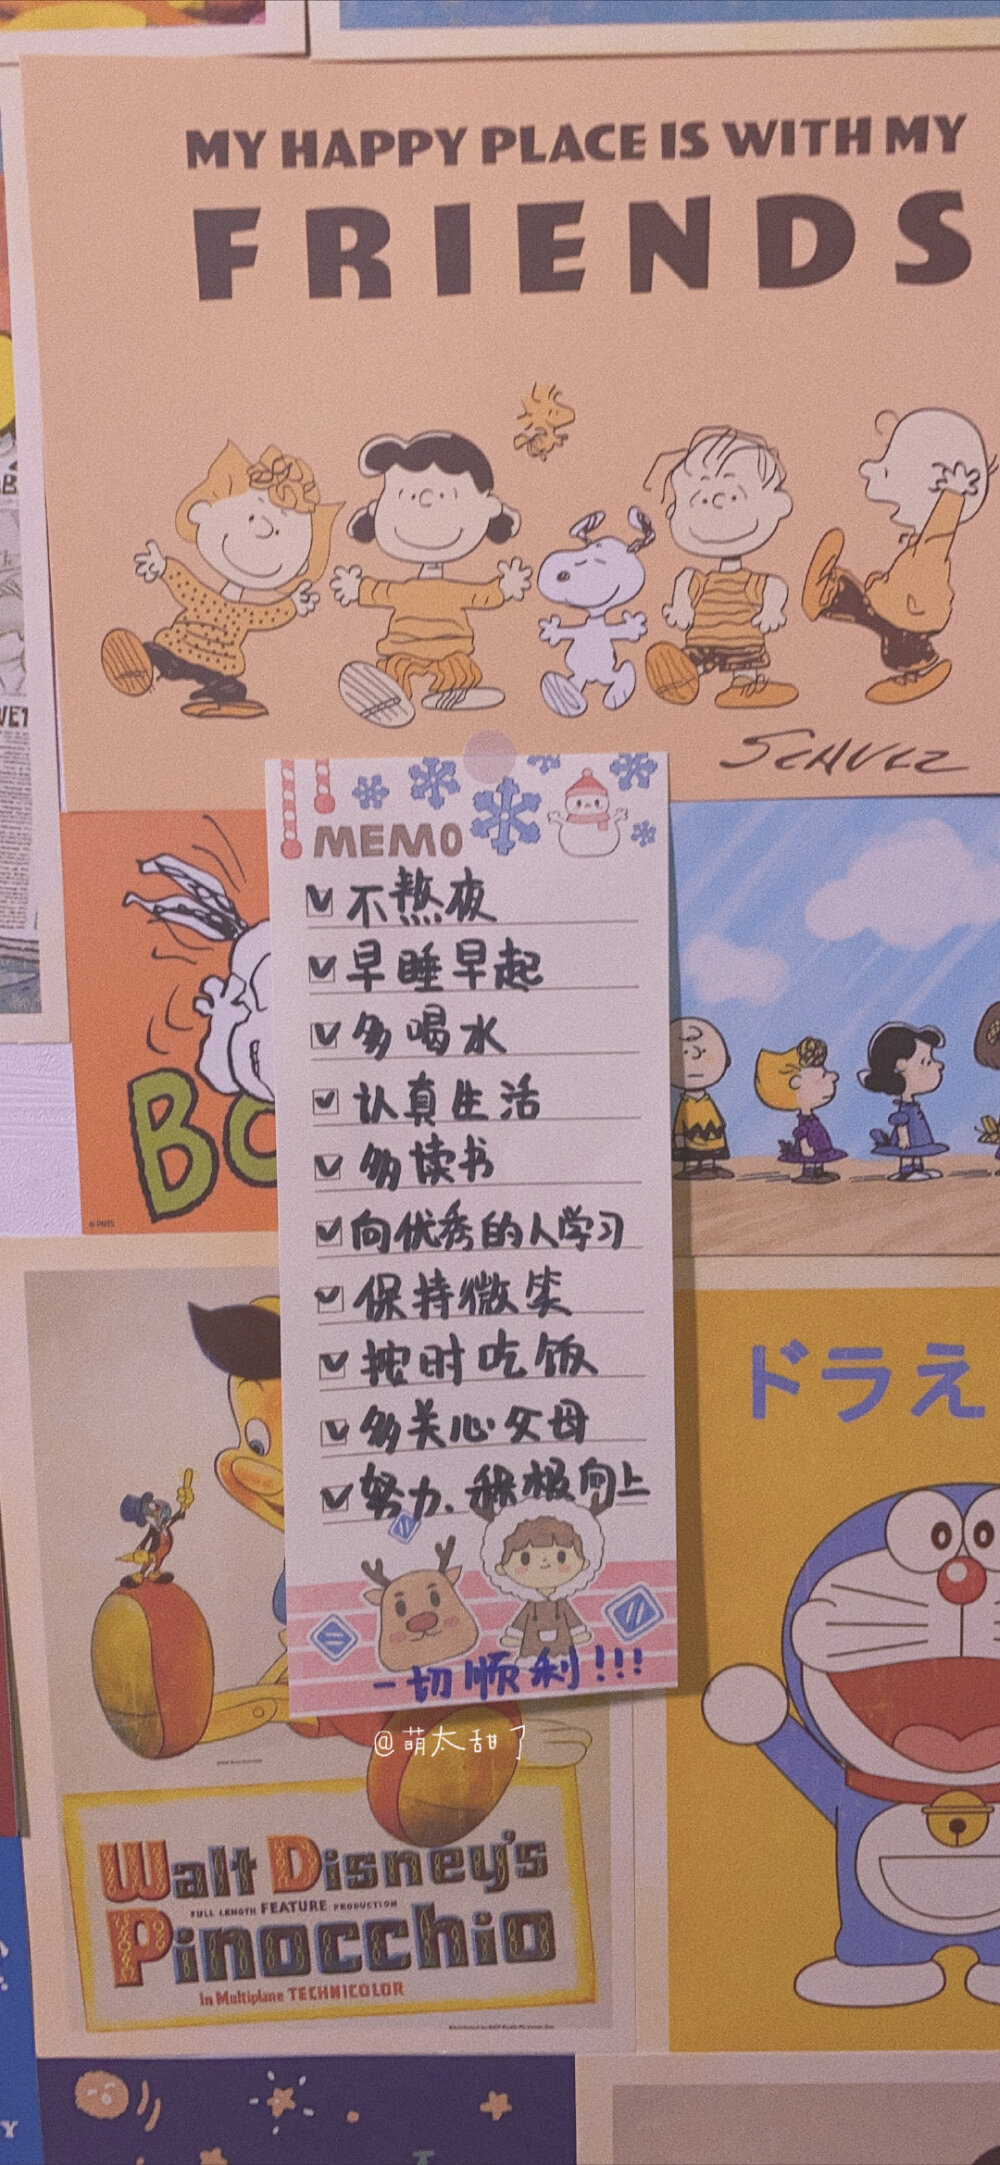 MY HAPPY PLACE IS WITH MY
FRIENDS
SCHULZ
MEMO
不熬夜
早睡早起
多喝水
认真生活
多读书
向优秀的人学习
保持微笑
按时吃饭
多关心父母
努力、积极向上
一切顺利!!!
BO
ドラえ
@萌太甜了
Walt Disney's
FULL LENGTH FEATURE PRODUCTION
Pinocchio
In Multiplane TECHNICOLOR